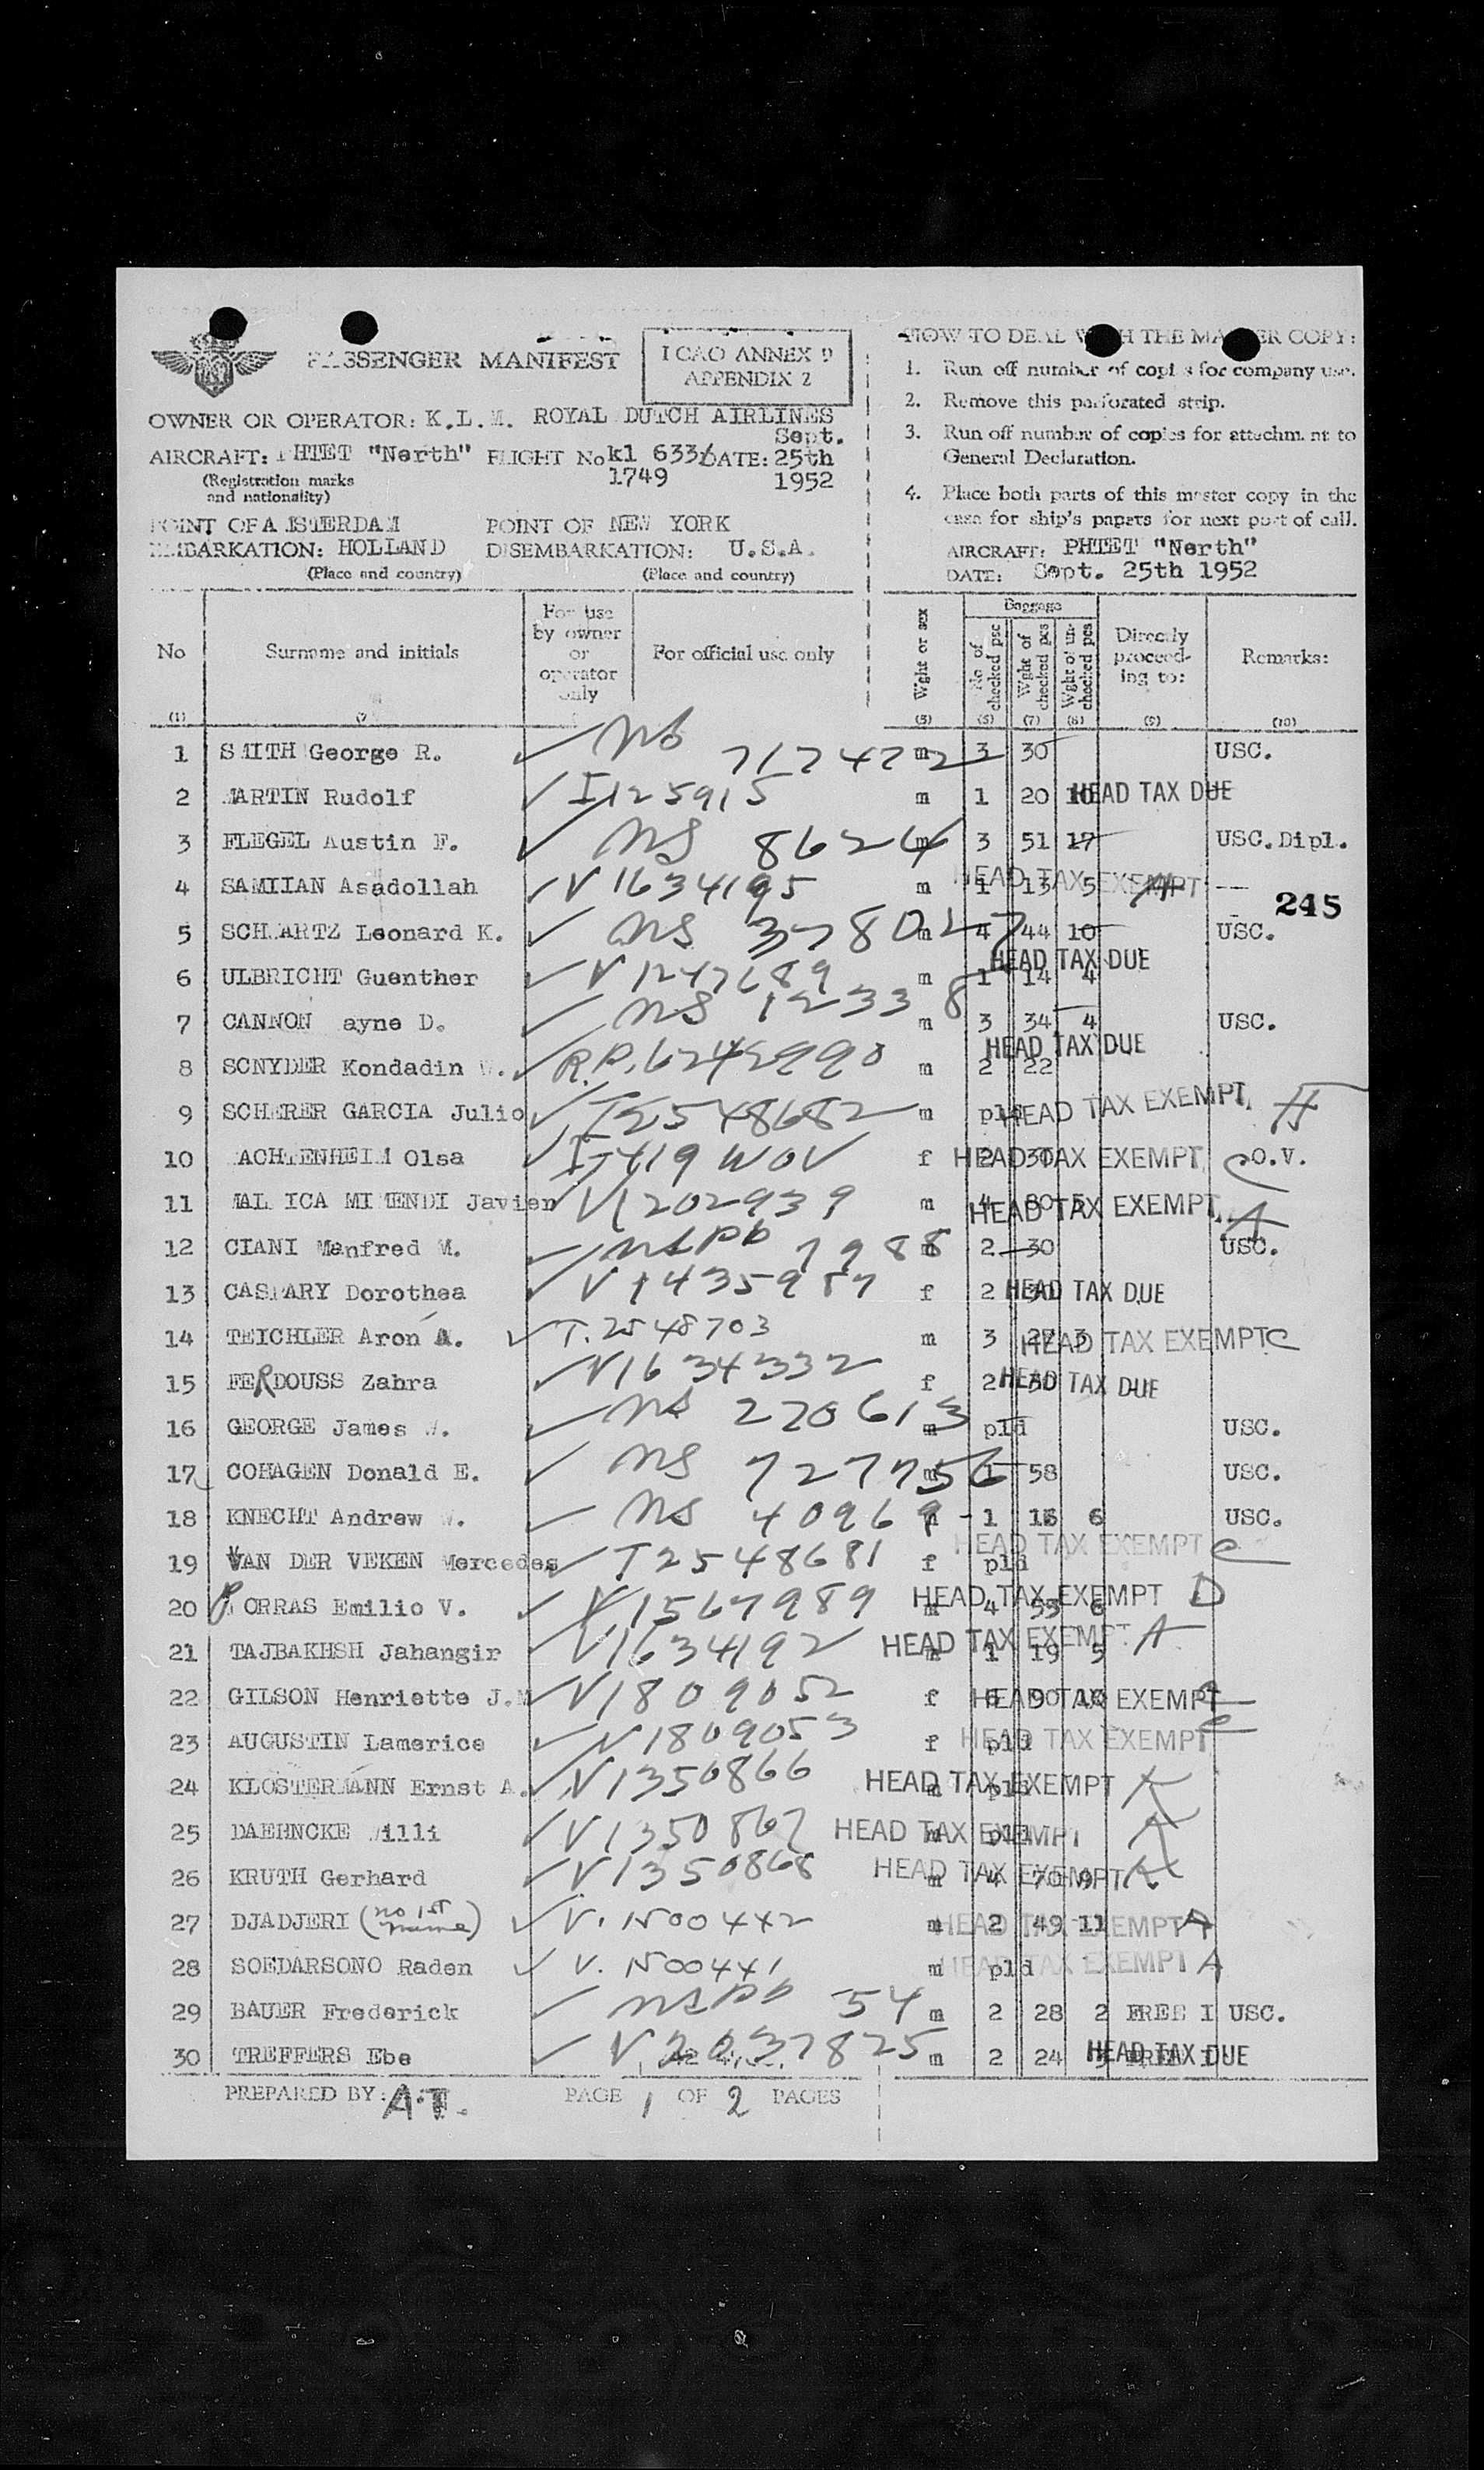 PASSENGER MANIFEST
ICAO ANNEX 9
APPENDIX 2
OWNER OR OPERATOR: K.L.M. ROYAL DUTCH AIRLINES
AIRCRAFT: PHTET "Nerth" FLIGHT No kl 633/ 1749 DATE: Sept. 25th 1952
(Registration marks
and nationality)
POINT OF EMBARKATION: AMSTERDAM HOLLAND POINT OF DISEMBARKATION: NEW YORK U.S.A.
(Place and country) (Place and country)
HOW TO DEAL WITH THE MASTER COPY:
1. Run off number of copies for company use.
2. Remove this perforated strip.
3. Run off number of copies for attachment to
General Declaration.
4. Place both parts of this master copy in the
case for ship's papers for next port of call.
AIRCRAFT: PHTET "Nerth"
DATE: Sept. 25th 1952
No Surname and initials For use by owner or operator only For official use only Wght or sex Baggage No of checked pcs Wght of checked pcs Wght of un-checked pcs Directly proceed-ing to: Remarks:
(1) (5) (6) (7) (8) (9) (10)
1 SMITH George R. m 3 30 USC.
2 MARTIN Rudolf I125915 m 1 20 10 HEAD TAX DUE
3 FLEGEL Austin F. NS 8624 m 3 51 17 USC.Dipl.
4 SAMIIAN Asadollah V1634195 m 1 13 5 HEAD TAX EXEMPT A
245
5 SCHWARTZ Leonard K. NS 378027 m 4 44 10 USC.
6 ULBRICHT Guenther V1247689 m 1 14 4 HEAD TAX DUE
7 CANNON ayne D. NS 12338 m 3 34 4 USC.
8 SCNYDER Kondadin W. R.P.6242990 m 2 22 HEAD TAX DUE
9 SCHERER GARCIA Julio T2548682 m pld HEAD TAX EXEMPT
10 ACHTENHEIM Olsa f 2 30 HEAD TAX EXEMPT O.V.
11 Javier V1202939 m 4 80 5 HEAD TAX EXEMPT A
12 CIANI Manfred M. NSPP 7988 m 2 30 USC.
13 CASPARY Dorothea V1435987 f 2 HEAD TAX DUE
14 TEICHLER Aron A. T.2548703 m 3 27 3 HEAD TAX EXEMPT C
15 FERDOUSS Zahra V1634332 f 2 30 HEAD TAX DUE
16 GEORGE James W. NS 220613 m pld USC.
17 COHAGEN Donald E. NS 727756 m 1 58 USC.
18 KNECHT Andrew W. NS 40969 m 1 16 6 USC.
19 VAN DER VEKEN Mercedes T2548681 f pld HEAD TAX EXEMPT C
20 PORRAS Emilio V. V1567989 m 4 55 6 HEAD TAX EXEMPT D
21 TAJBAKHSH Jahangir V1634192 m 1 19 5 HEAD TAX EXEMPT A
22 GILSON Henriette J.M V1809052 f 6 90 10 HEAD TAX EXEMPT C
23 AUGUSTIN Lamerice V1809053 f pld HEAD TAX EXEMPT C
24 KLOSTERMANN Ernst A. V1350866 m pld HEAD TAX EXEMPT A
25 DAEHNCKE Willi V1350867 m pld HEAD TAX EXEMPT A
26 KRUTH Gerhard V1350868 m 4 70 9 HEAD TAX EXEMPT A
27 DJADJERI (no 1st name) V.1500442 m 2 49 11 HEAD TAX EXEMPT A
28 SOEDARSONO Raden V.1500441 m pld HEAD TAX EXEMPT A
29 BAUER Frederick NSPP 54 m 2 28 2 FREE I USC.
30 TREFFERS Ebe V2037825 m 2 24 3 FREE I HEAD TAX DUE
PREPARED BY: A.T. PAGE 1 OF 2 PAGES